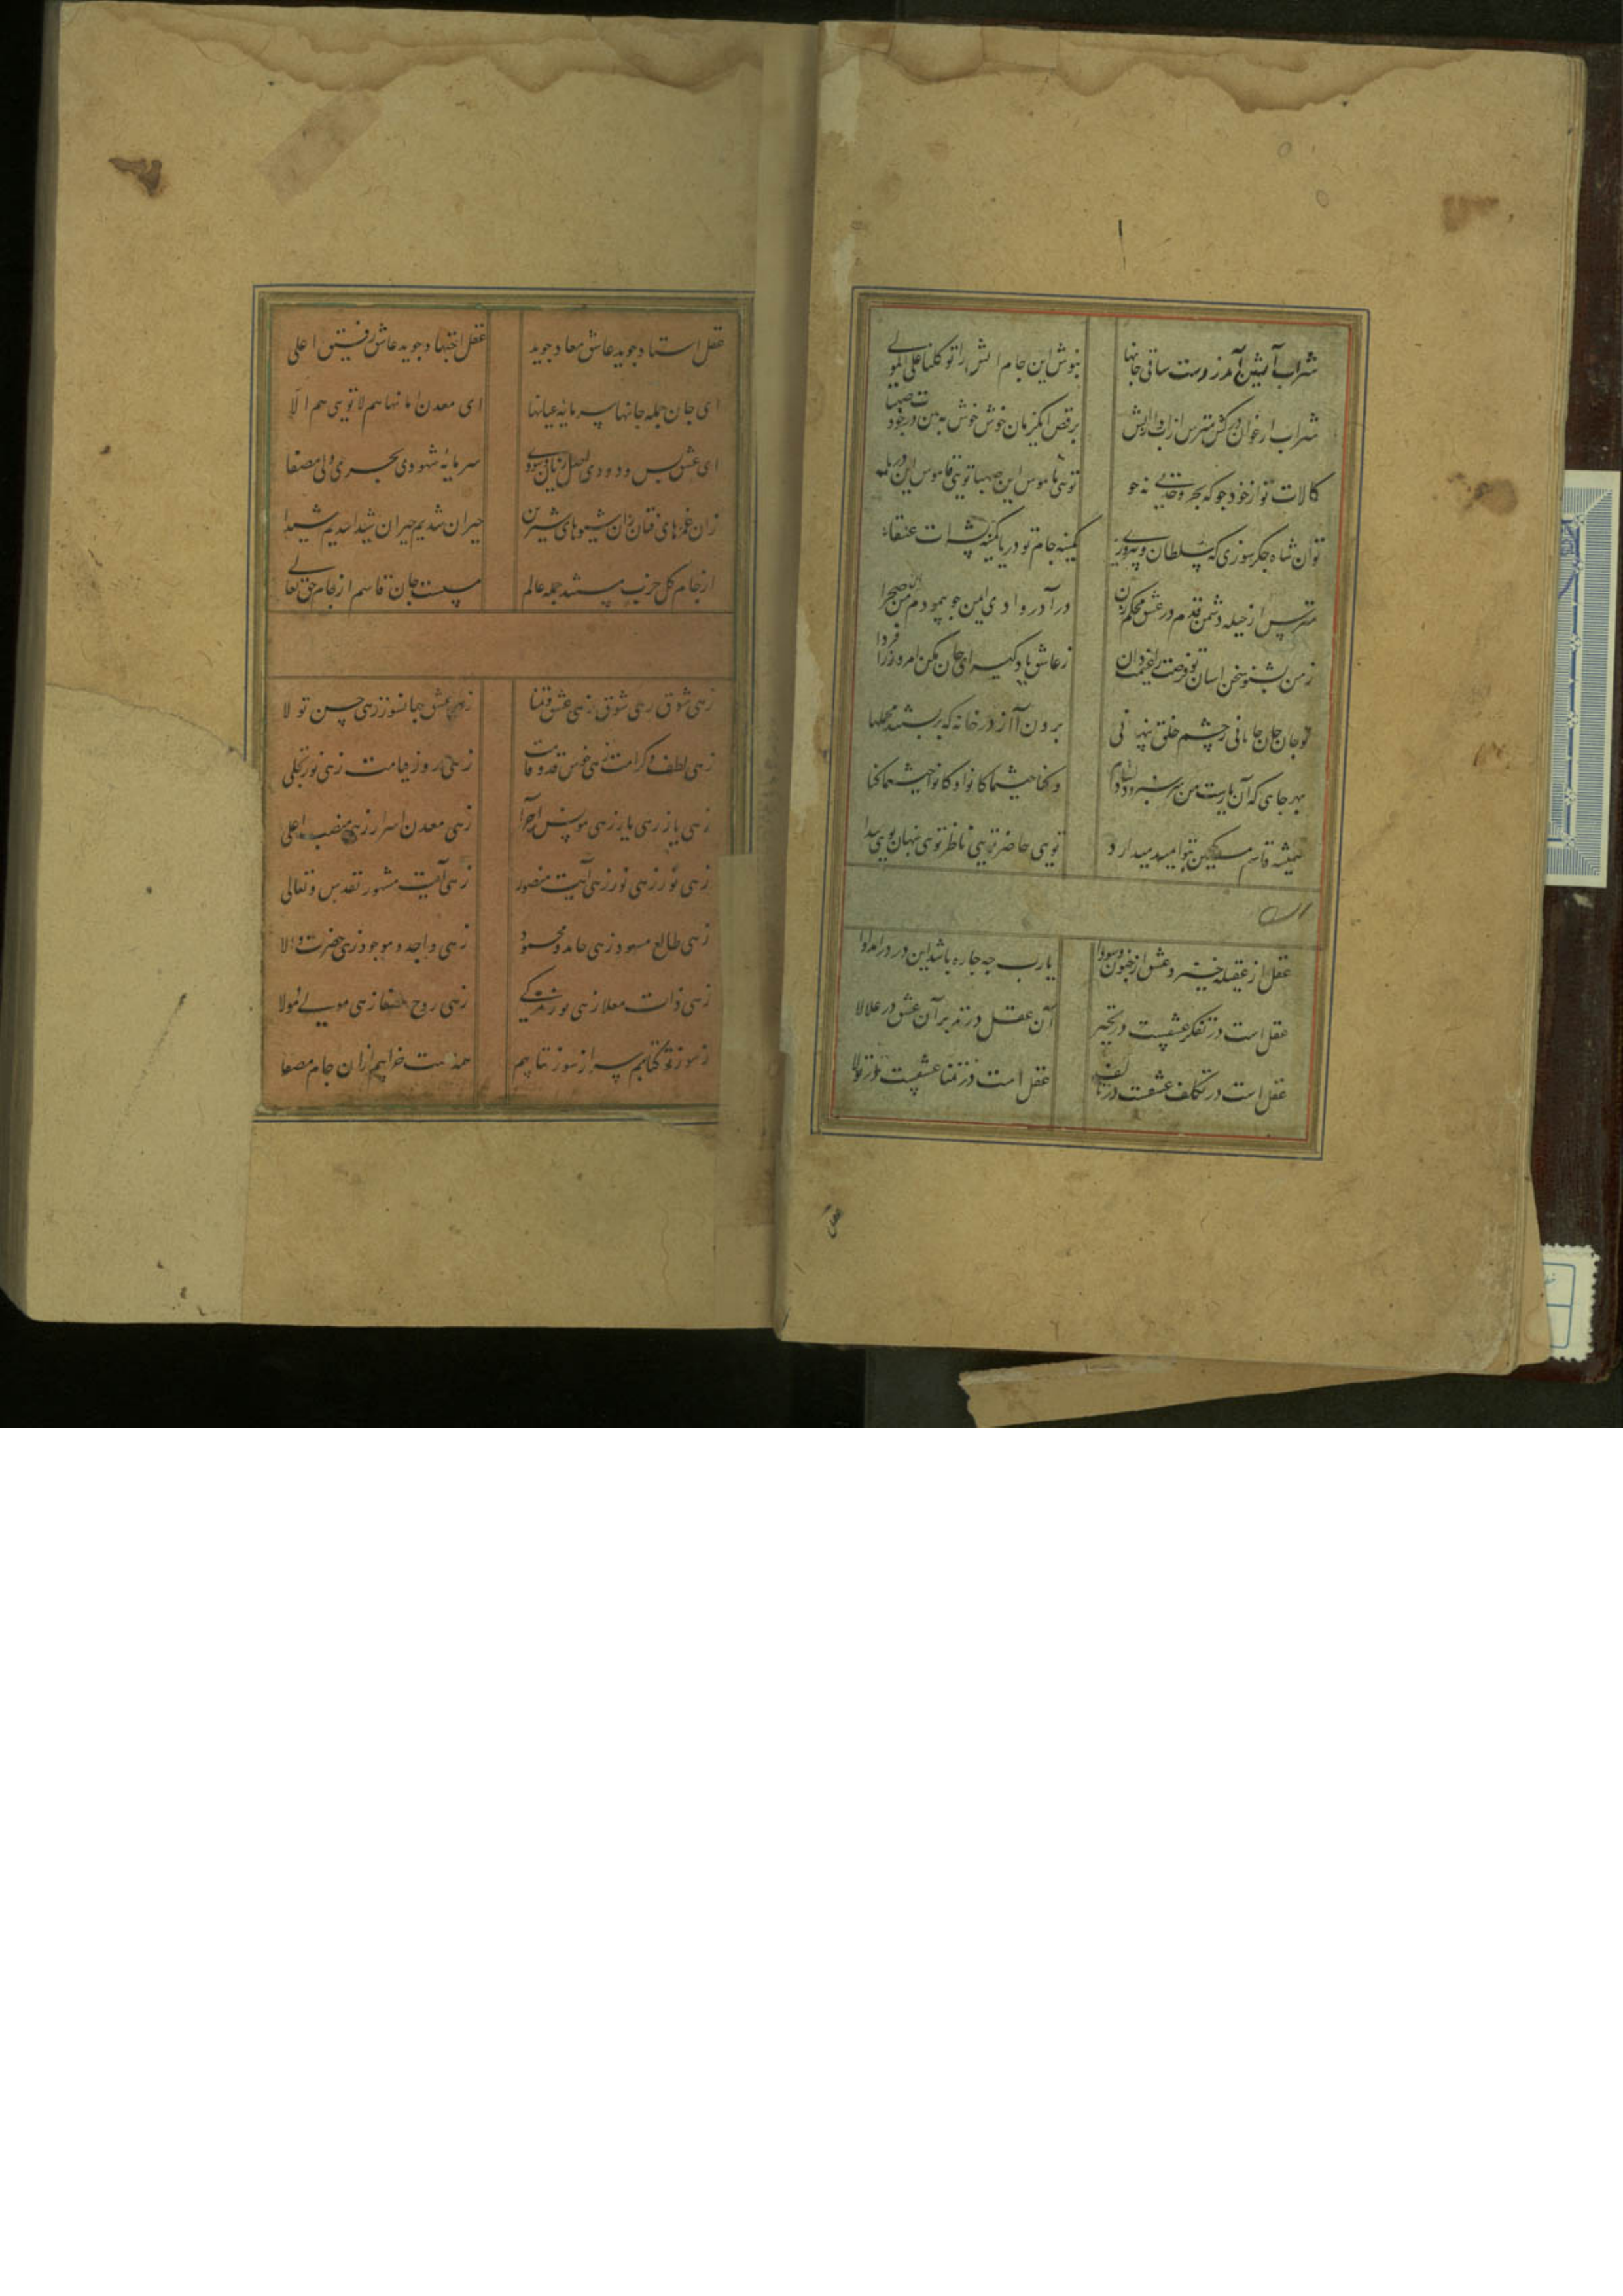 شراب آتشین آمد ز دست ساقی جانها بنوش این جام اتش را توکلنا علی المولی
شراب ارغوان درکش مترس از بنوش این خوش خوش
کالات تو از خود جو که بحر وحدتی نه جو تویی ناموس این صهبا تویی قاموس این دریا
توان شاه جکر سوزی که سلطان و پیروزی کمینه جام تو دریا کمینه پشه ات عنقاء
مترس از حیله دشمن قدم در عشق محکم زن درآ در وادی ایمن جو پیمودم من صحرا
ز من بشنو سخن اسان تو فرصت را غنیمت دان ز عاشق یاد کیر ای جان مکن امروز را فردا
تو جان جان جانانی ز چشم خلق پنهانی برون آ از در خانه که بر بستند محملها
بهر جای که آن یارست من سر سبز و دلشادم و کنا حیثما کانوا و کانوا حیثما کنا
همیشه قاسم مسکین بتو امید میدارد تویی حاضر تویی ناظر توی پنهان تویی پیدا
عقل از عقیله خیزد و عشق از جنون و سودا یارب چه جاره باشد این درد را مداوا
عقل است در تفکر عشقست در تحیر آن عقل در تدبر آن عشق در علالا
عقل است در تکلف عشقست در عقل است در تمنا عشقست در تولا
عقل استناد جوید عاشق معاد جوید عقل اجتهاد جوید عاشق رفیق اعلی
ای جان جمله جانها سرمایه عیانها ای معدن امانها هم لا تویی هم الا
ای عشق بس ودودی اصل زیان و سودی سرمایه شهودی بحری ولی مصفا
زان غمزهای فتان زان شیوهای شیرین حیران شدیم حیران شیدا شدیم شیدا
از جام کل حزب مستند جمله عالم مست جان قاسم از جام حق تعالی
زهی شوق زهی شوق زهی عشق و تمنا زهی عشق جهانسوز زهی حسن تولا
زهی لطف و کرامت زهی خوش قد و قامت زهی روز قیامت زهی نور تجلی
زهی یار زهی یار زهی مونس احرار زهی معدن اسرار زهی منصب اعلی
زهی نور زهی نور زهی آیت منصور زهی آیت مشهور تقدس و تعالی
زهی طالع مسعود زهی حامد و محمود زهی واجد و موجود زهی حضرت والا
زهی ذات معلا زهی نور زهی روح زهی مولی مولا
ز سوز تو کتابیم سر از سوز نتابیم همه مست خرابیم ازان جام مصفا